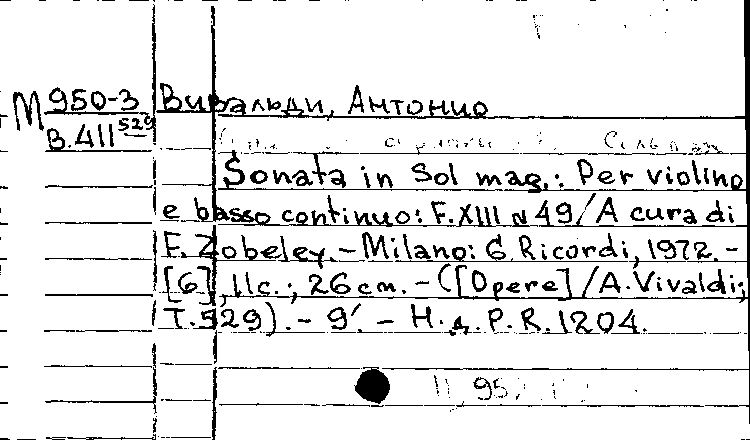 М 950-3 Вивальди, Антонио
В.411 529
Sonata in Sol mag.: Per violino
e basso continuo: F. XIII № 49/A cura di
F. Zobeley. - Milano: G. Ricordi, 1972. -
[6], 11c.; 26 cm. - ([Opere] / A. Vivaldi;
T. 529). - 9'. - Н.д. P.R. 1204.